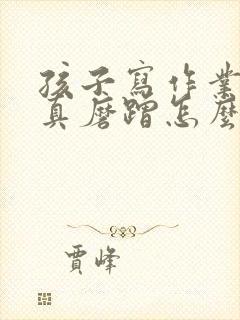 孩子寫作業
真磨蹭怎麼
賈峰